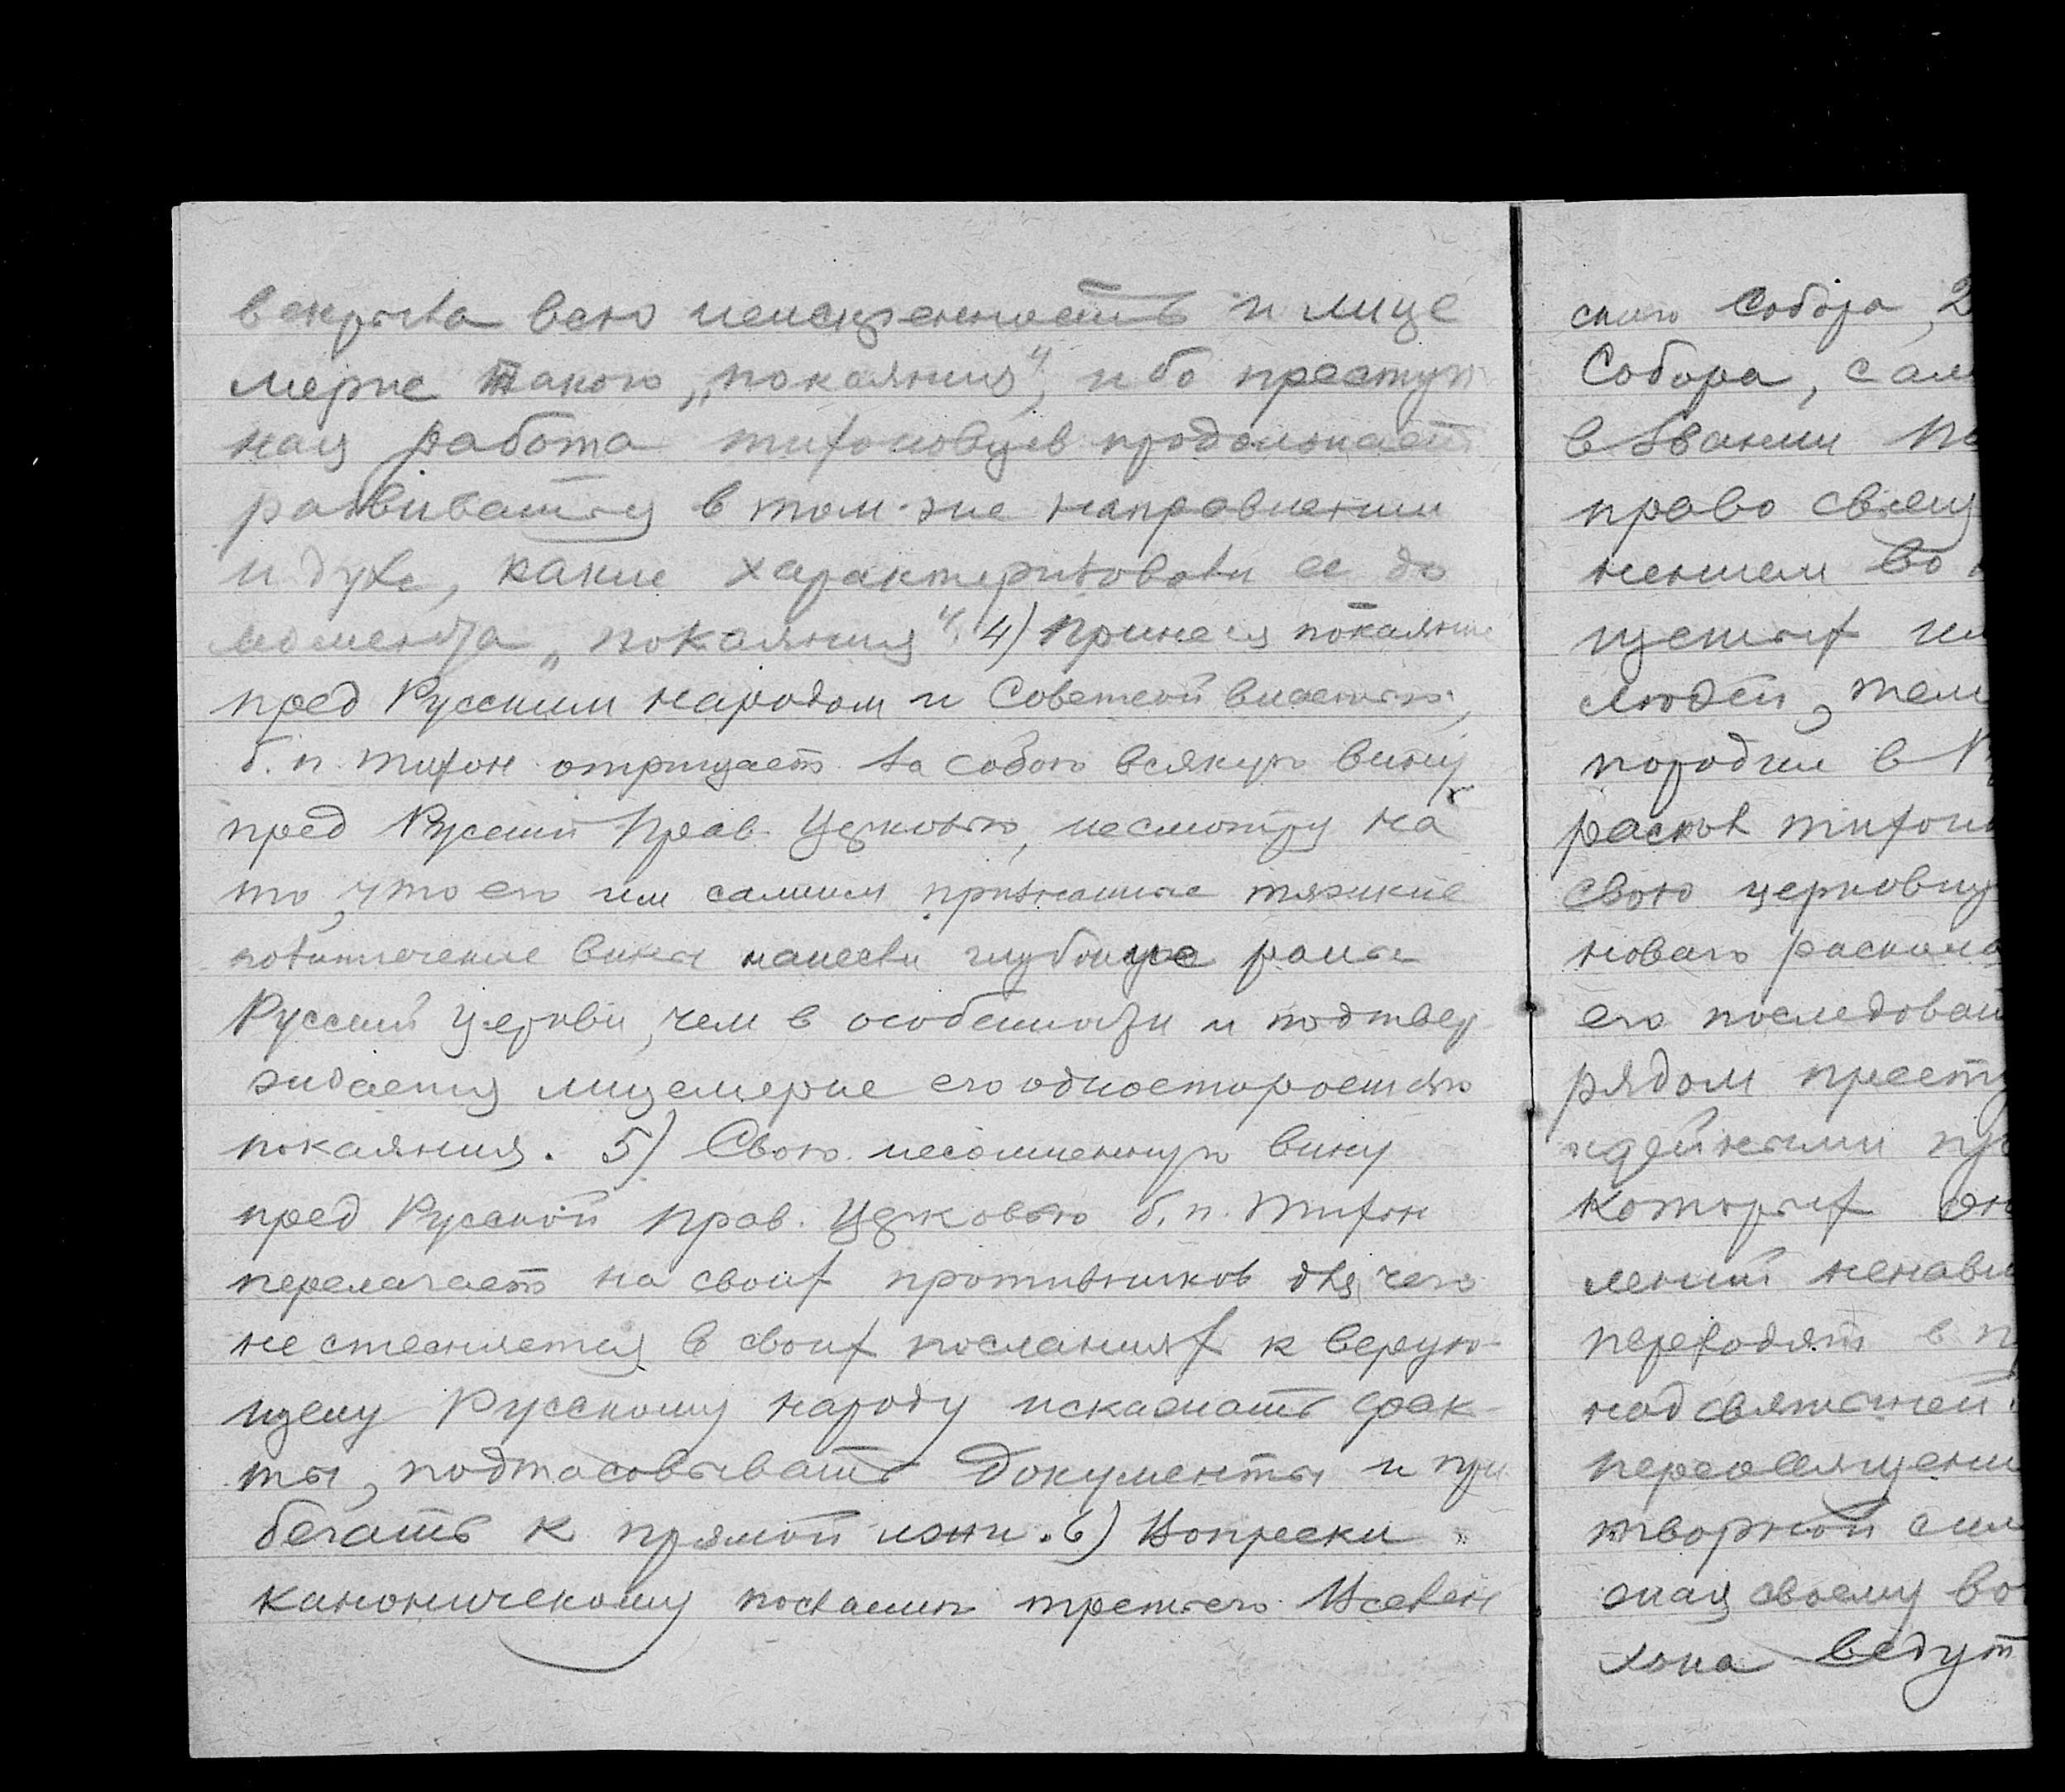 вскрыла всю неискренность и лице
мерие такого „покаяния“, ибо преступ
ная работа тихоновцев продолжает
развиваться в том-же направлении
и духе, какие характеризовали ее до
момента „покаяния“. 4) Принеся покаяние
пред Русским народом и Советской властью,
б. п. Тихон отрицает за собою всякую вину
пред Русской Прав. Церковью, несмотря на
то, что его им самим признанные тяжкие
политические вины нанесли глубокие раны
Русской Церкви, чем в особенности и подтвер
ждается лицемерие его одностороннего
покаяния. 5) Свою несомненную вину
пред Русской Прав. Церковью б. п. Тихон
перелагает на своих противников для чего
не стесняется в своих посланиях к верую-
щему Русскому народу искажать фак-
ты, подтасовывать документы и при
бегать к прямой лжи. 6) Вопреки
каноническому послании третьего Вселен
ского Собора, 2
Собора, сам
в звании
право свящ
нением во
щеных
людей, тем
породил в
раскол тихон
свою церковну
новаго раскола
его последоват
рядом прест
идейными
которых он
лений ненави
переходят в
над святыней
переосвящени
творной сил
своему во
хона ведут